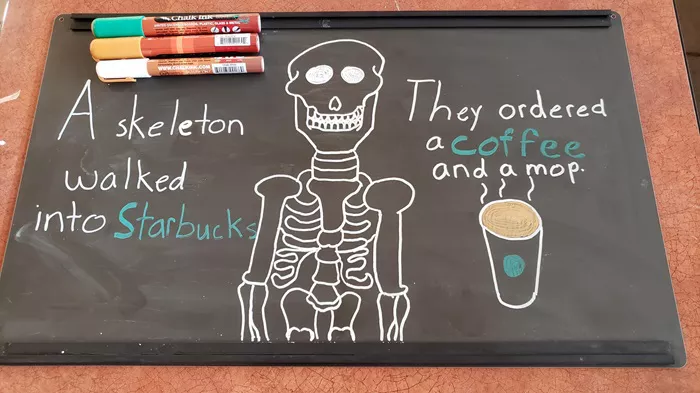 Chalk Ink
WWW.CHALKINK.COM
A skeleton
walked
into Starbucks
They ordered
a coffee
and a mop.